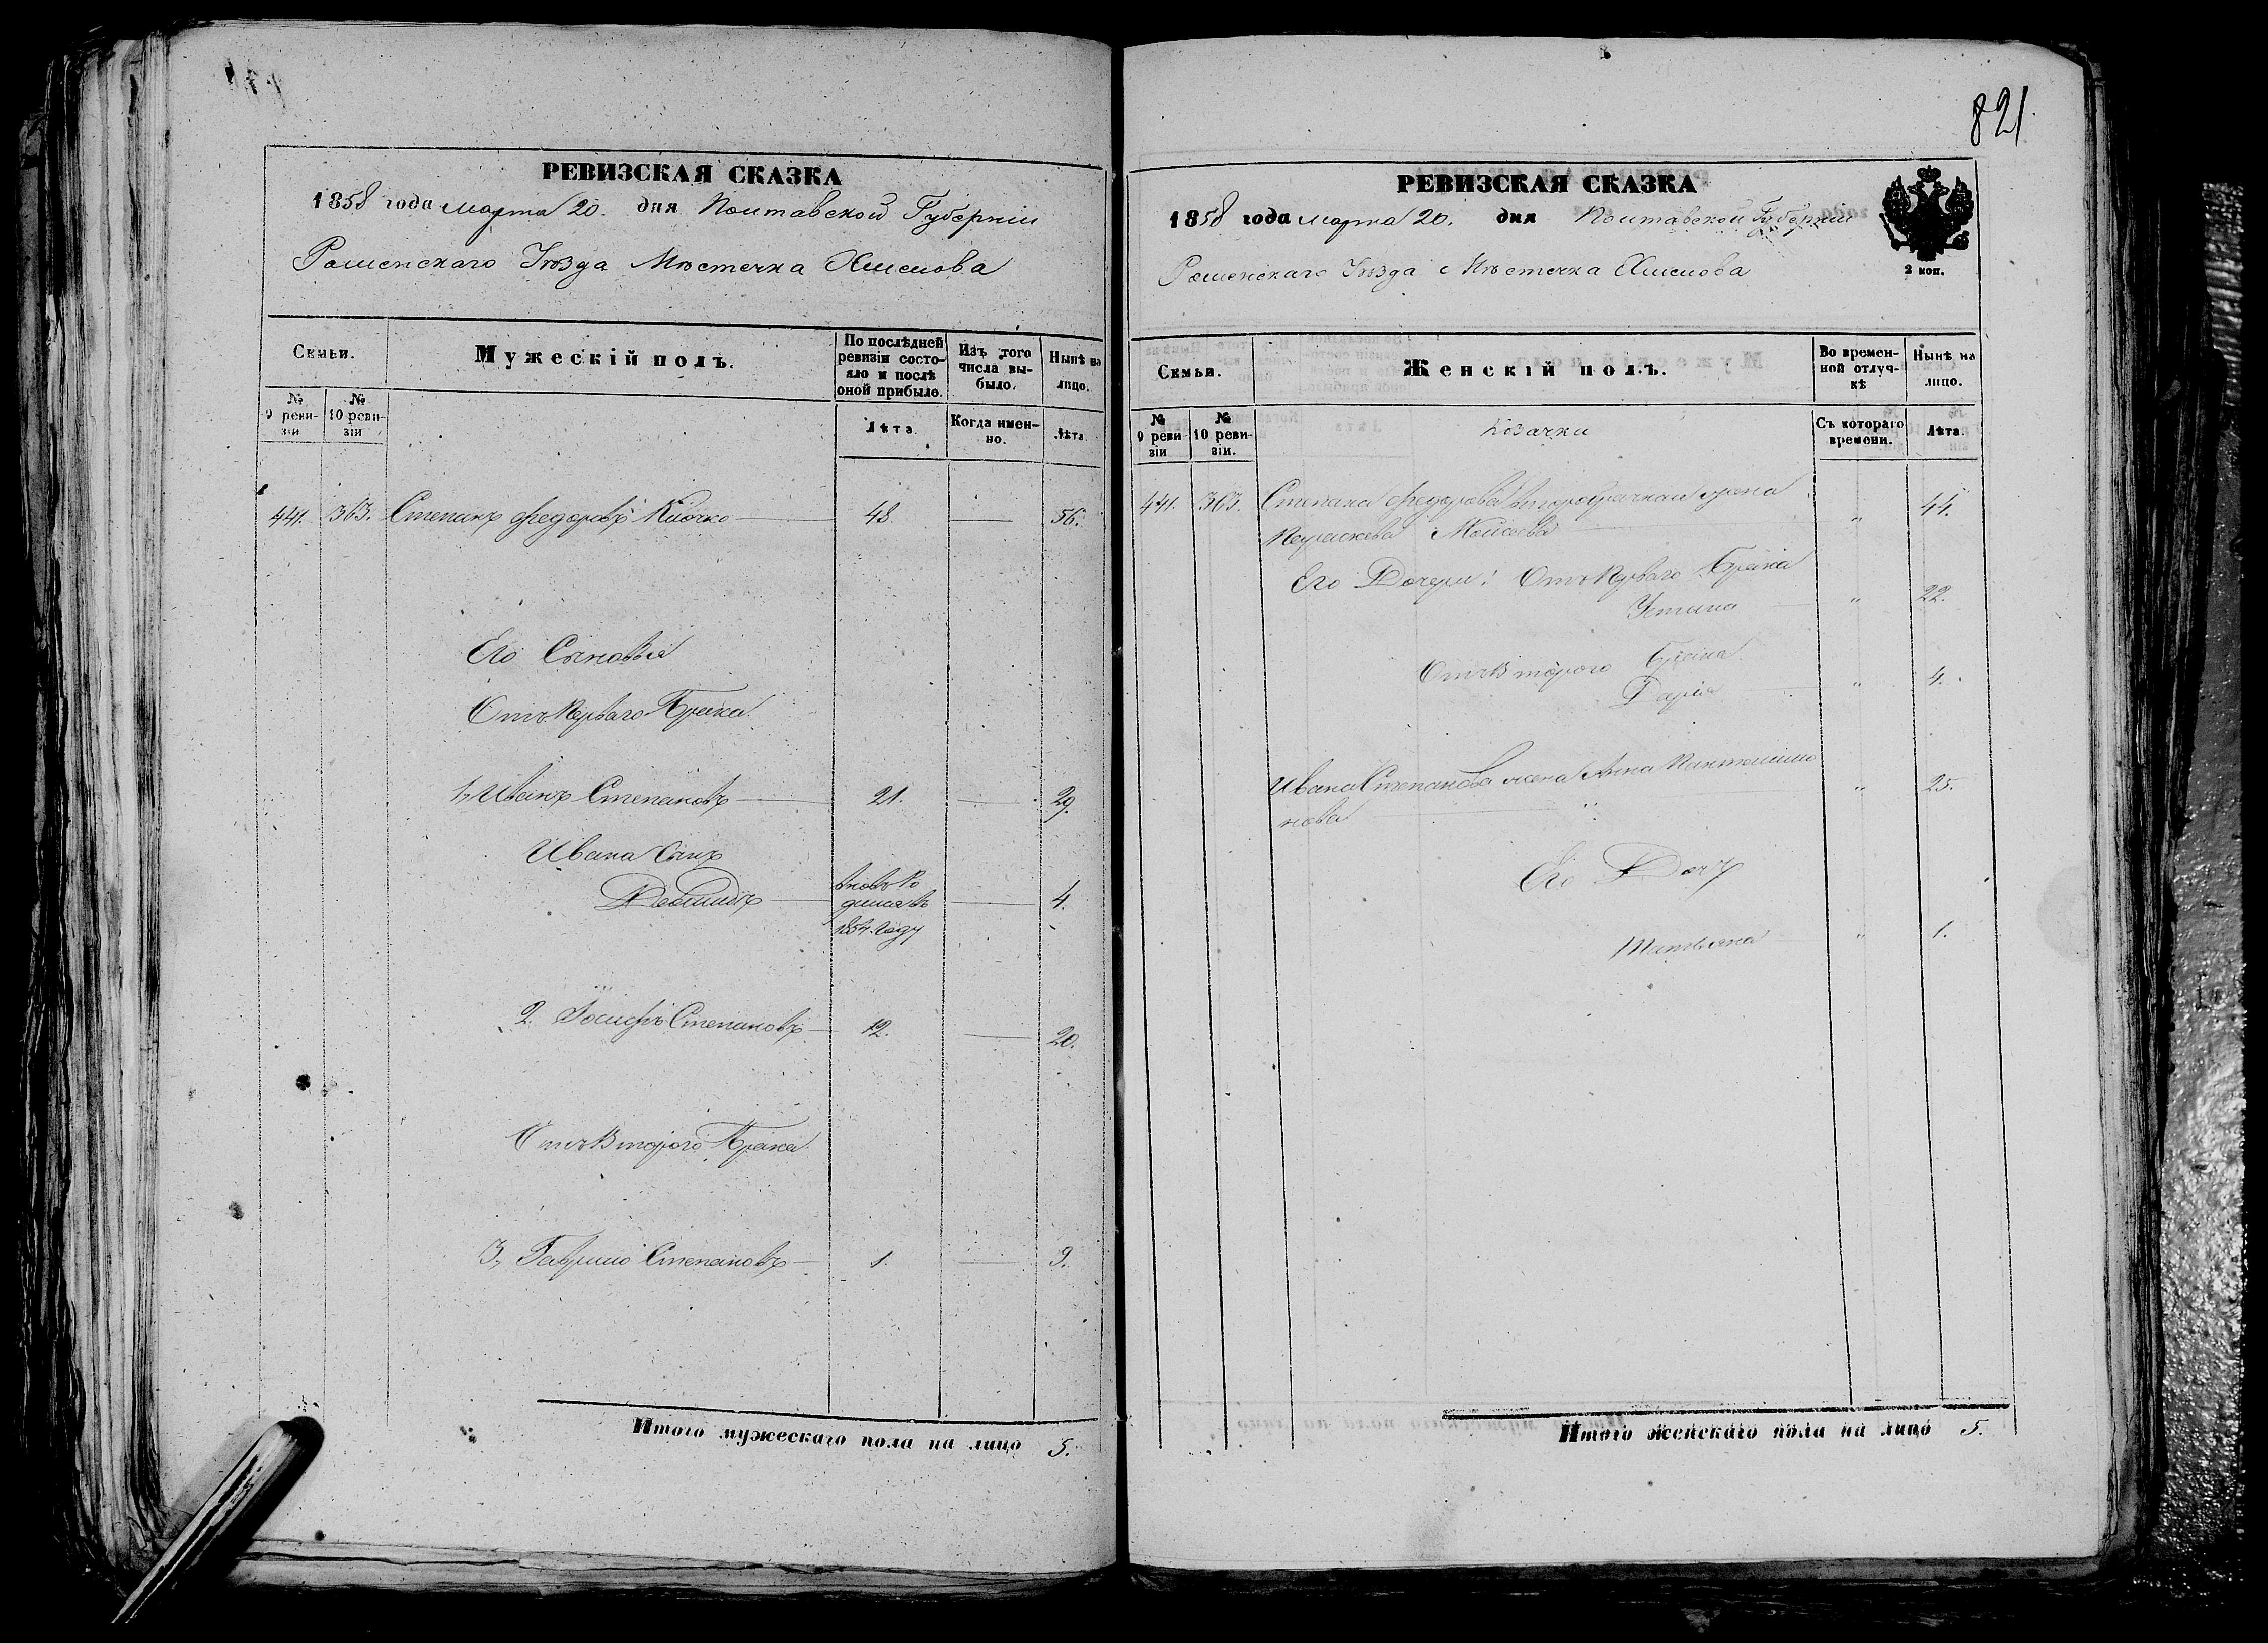 РЕВИЗСКАЯ СКАЗКА
1858 года марта 20. дня Полтавской Губерніи
Роменскаго Уѣзда Мѣстечка Смелова
Семьи.
Мужескій полъ.
По послѣдней ревизіи состояло и послѣ оной прибыло.
Изъ того числа выбыло.
Нынѣ на лицо.
№ 9 ревизіи
№ 10 ревизіи
Лѣта.
Когда именно.
Лѣта.
441. 363. Степанъ Федоровъ Клочко 48. 56.
Его Сыновья
Отъ Перваго Брака
1, Иванъ Степановъ 21. 29.
Ивана Сынъ
Леонидъ 4.
вновь Родился въ 1854. Году
2. Іосифъ Степановъ 12. 20.
Отъ Второго Брака
3, Гаврило Степановъ 1. 9.
Итого мужескаго пола на лицо 5.
821.
РЕВИЗСКАЯ СКАЗКА
1858 года марта 20. дня Полтавской Губерніи
Роменскаго Уѣзда Мѣстечка Смелова
2 коп.
Семьи.
Женскій полъ.
Во временной отлучкѣ
Нынѣ на лицо.
№ 9 ревизіи
№ 10 ревизіи.
Козачки
Съ котораго времени.
Лѣта.
441. 363. Степана Федорова второбрачная жена
Параскева Моисеева " 44.
Его Дочери: Отъ Перваго Брака
Устина " 22.
Отъ Второго Брака
Дарія " 4.
Ивана Степанова жена Анна Пантелеимо
нова " 25.
Его Дочь
Татьяна " 1.
Итого женскаго пола на лицо 5.